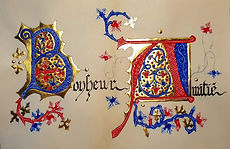 Bonheur Amitié